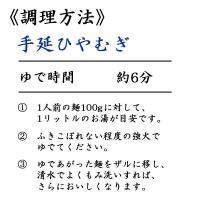 《調理方法》
手延ひやむぎ
ゆで時間 約6分
① 1人前の麺100gに対して、
1リットルのお湯が目安です。
② ふきこぼれない程度の強火で
ゆでてください。
③ ゆであがった麺をザルに移し、
清水でよくもみ洗いすれば、
さらにおいしくなります。